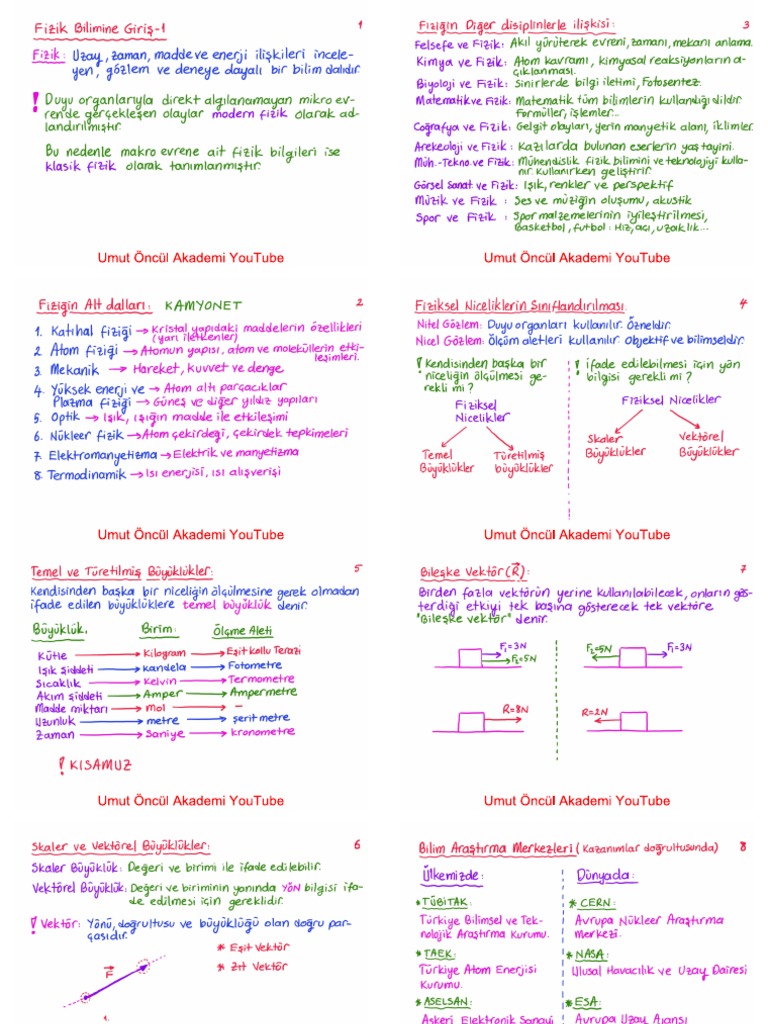 Fizik Bilimine Giriş-1 1
Fizik: Uzay, zaman, madde ve enerji ilişkileri incele-
yen, gözlem ve deneye dayalı bir bilim dalıdır.
! Duyu organlarıyla direkt algılanamayan mikro ev-
rende gerçekleşen olaylar modern fizik olarak ad-
landırılmıştır.
Bu nedenle makro evrene ait fizik bilgileri ise
klasik fizik olarak tanımlanmıştır.
Umut Öncül Akademi YouTube
Fiziğin Diğer disiplinlerle ilişkisi: 3
Felsefe ve Fizik: Akıl yürüterek evreni, zamanı, mekanı anlama.
Kimya ve Fizik: Atom kavramı, kimyasal reaksiyonların a-
çıklanması.
Biyoloji ve Fizik: Sinirlerde bilgi iletimi, Fotosentez.
Matematik ve Fizik: Matematik tüm bilimlerin kullandığı dildir.
Formüller, işlemler...
Coğrafya ve Fizik: Gelgit olayları, yerin manyetik alanı, iklimler.
Arekeoloji ve Fizik: Kazılarda bulunan eserlerin yaş tayini.
Müh.-Tekno.ve Fizik: Mühendislik fizik bilimini ve teknolojiyi kulla-
nır. Kullanırken geliştirir.
Görsel Sanat. ve Fizik: Işık, renkler ve perspektif
Müzik ve Fizik: Ses ve müziğin oluşumu, akustik
Spor ve Fizik: Spor malzemelerinin iyileştirilmesi,
Basketbol, futbol: Hız, açı, uzaklık...
Umut Öncül Akademi YouTube
Fiziğin Alt dalları: KAMYONET 2
1. Katıhal fiziği → Kristal yapıdaki maddelerin özellikleri
(yarı iletkenler)
2. Atom fiziği → Atomun yapısı, atom ve moleküllerin etki-
leşimleri.
3. Mekanik → Hareket, kuvvet ve denge
4. Yüksek enerji ve → Atom altı parçacıklar
Plazma fiziği → Güneş ve diğer yıldız yapıları
5. Optik → Işık, ışığın madde ile etkileşimi
6. Nükleer fizik → Atom çekirdeği, çekirdek tepkimeleri
7. Elektromanyetizma → Elektrik ve manyetizma
8. Termodinamik → Isı enerjisi, ısı alışverişi
Umut Öncül Akademi YouTube
Fiziksel Niceliklerin Sınıflandırılması: 4
Nitel Gözlem: Duyu organları kullanılır. Özneldir.
Nicel Gözlem: Ölçüm aletleri kullanılır. Objektif ve bilimseldir.
! Kendisinden başka bir
niceliğin ölçülmesi ge-
rekli mi?
Fiziksel
Nicelikler
Temel
Büyüklükler
Türetilmiş
büyüklükler
! ifade edilebilmesi için yön
bilgisi gerekli mi?
Fiziksel Nicelikler
Skaler
Büyüklükler
Vektörel
Büyüklükler
Umut Öncül Akademi YouTube
Temel ve Türetilmiş Büyüklükler: 5
Kendisinden başka bir niceliğin ölçülmesine gerek olmadan
ifade edilen büyüklüklere temel büyüklük denir.
Büyüklük: Birim: Ölçme Aleti
Kütle → Kilogram → Eşit kollu Terazi
Işık şiddeti → kandela → Fotometre
Sıcaklık → Kelvin → Termometre
Akım şiddeti → Amper → Ampermetre
Madde miktarı → mol → -
Uzunluk → metre → şerit metre
Zaman → Saniye → kronometre
! KISAMUZ
Umut Öncül Akademi YouTube
Bileşke Vektör (R): 7
Birden fazla vektörün yerine kullanılabilecek, onların gös-
terdiği etkiyi tek başına gösterecek tek vektöre
"Bileşke vektör" denir.
F₁=3N
F₂=5N
F₂=5N F₁=3N
R=8N
R=2N
Umut Öncül Akademi YouTube
Skaler ve Vektörel Büyüklükler: 6
Skaler Büyüklük: Değeri ve birimi ile ifade edilebilir.
Vektörel Büyüklük: Değeri ve biriminin yanında YÖN bilgisi ifa-
de edilmesi için gereklidir.
! Vektör: Yönü, doğrultusu ve büyüklüğü olan doğru par-
çasıdır.
* Eşit Vektör
* Zıt Vektör
F
Bilim Araştırma Merkezleri (Kazanımlar doğrultusunda) 8
Ülkemizde:
* TÜBİTAK:
Türkiye Bilimsel ve Tek-
nolojik Araştırma Kurumu.
* TAEK:
Türkiye Atom Enerjisi
Kurumu.
* ASELSAN:
Askeri Elektronik Sanayi
Dünyada:
* CERN:
Avrupa Nükleer Araştırma
Merkezi.
* NASA:
Ulusal Havacılık ve Uzay Dairesi
* ESA:
Avrupa Uzay Ajansı